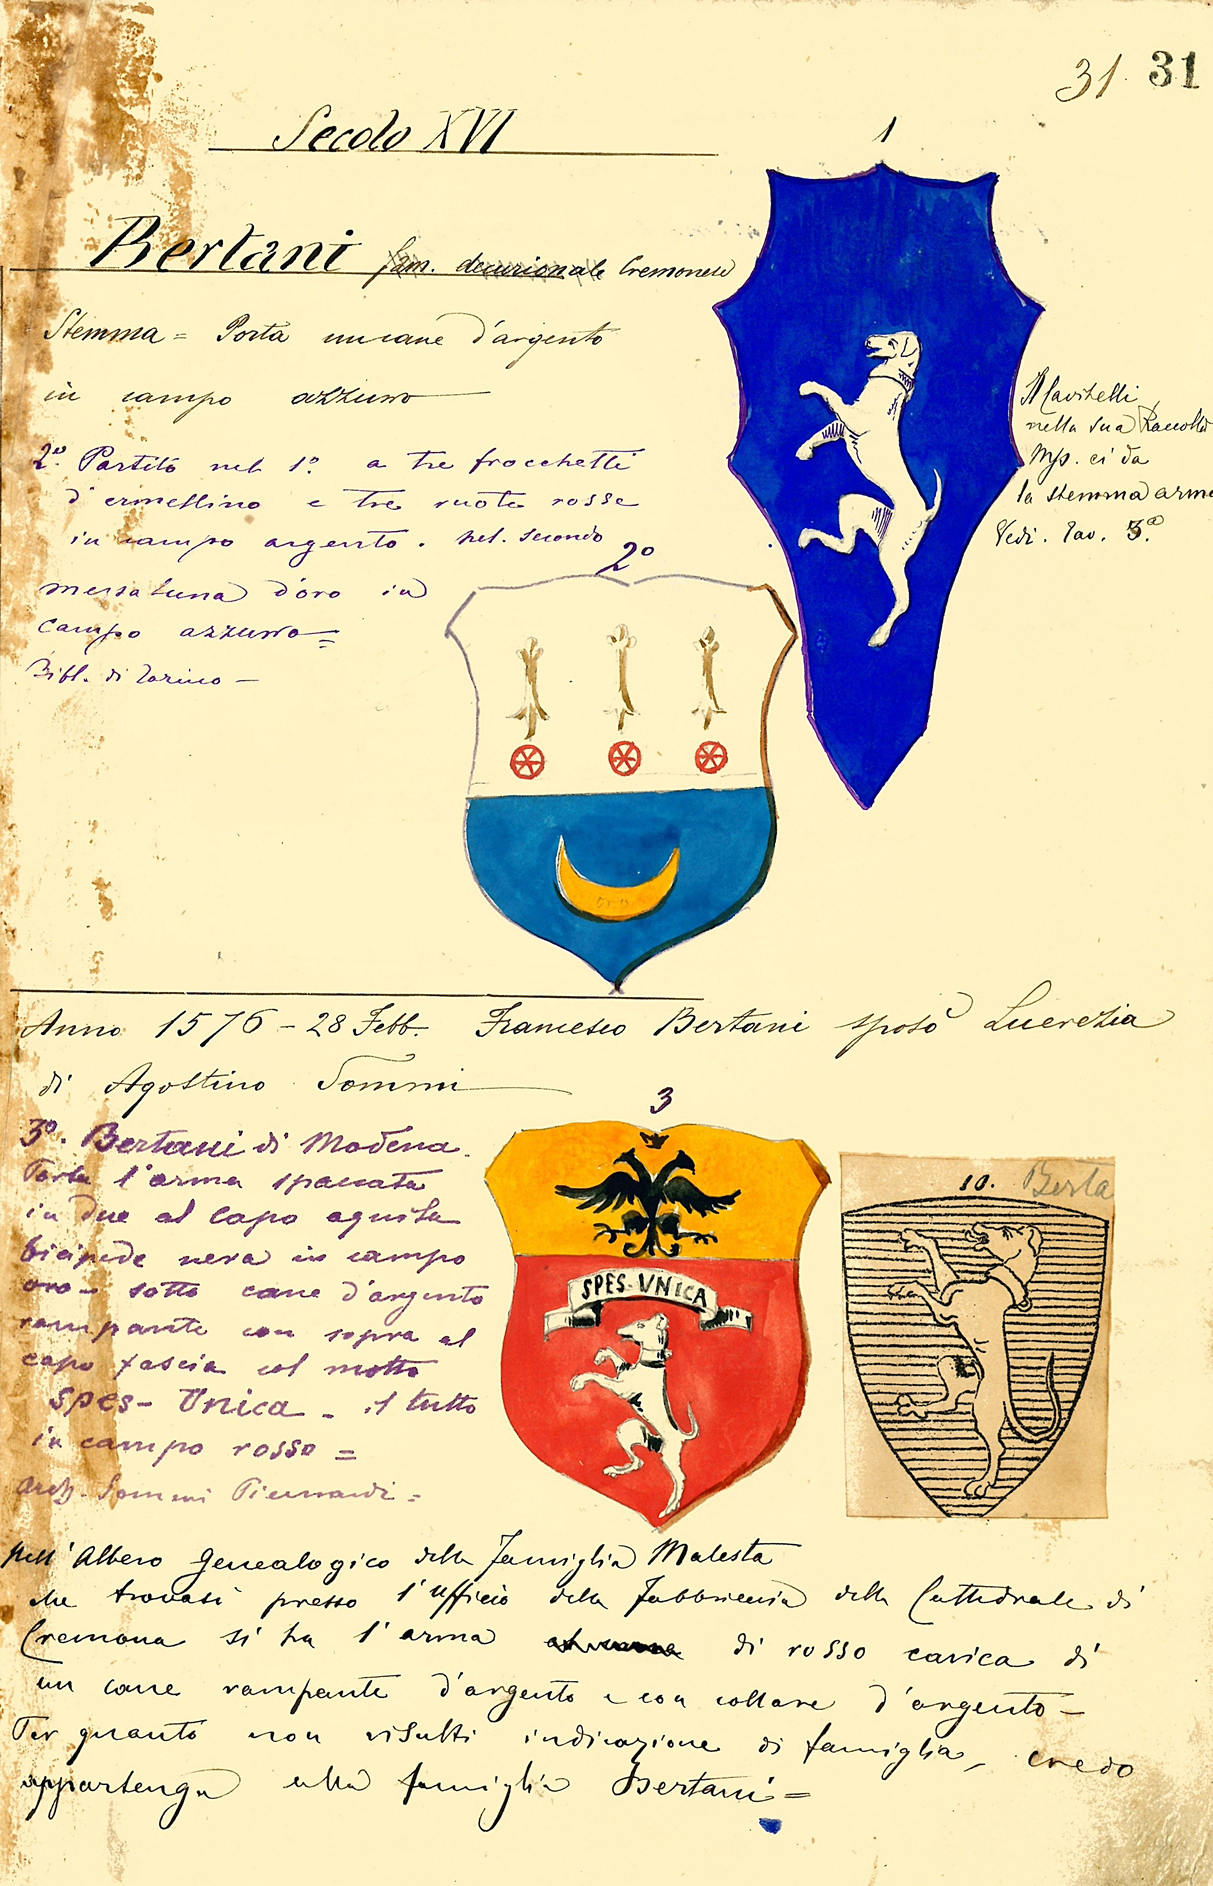 31. 31
Secolo XVI
1
Bertani fam. decurionale Cremonese
Stemma = Porta un cane d'argento
in campo azzurro
Il Cavitelli
nella sua Raccolta
Mp. ci da
lo stemma arma
Vedi. Tav. 3.ª
2º Partito nel 1º. a tre frocchetti
d'ermellino e tre ruote rosse
in campo argento. nel. secondo
mezza luna d'oro in
campo azzurro =
Bibl. di Torino -
2º
oro
Anno 1576 - 28 Febb. Francesco Bertani sposò Lucrezia
di Agostino Sommi
3º. Bertani di Modena.
Porta l'arma spaccata
in due al Capo aquila
bicipede nera in campo
oro - sotto cane d'argento
rampante con sopra al
capo fascia col motto
Spes - Unica - il tutto
in campo rosso =
Arch. Sommi Picenardi =
3
SPES - VNICA
10. Berta
Nell'Albero Genealogico della Famiglia Malesta
che trovasi presso l'Ufficio della Fabbriceria della Cattedrale di
Cremona si ha l'arma di rosso carica di
un cane rampante d'argento e con collare d'argento -
Per quanto non risulti indicazione di famiglia, credo
appartenga alla famiglia Bertani =